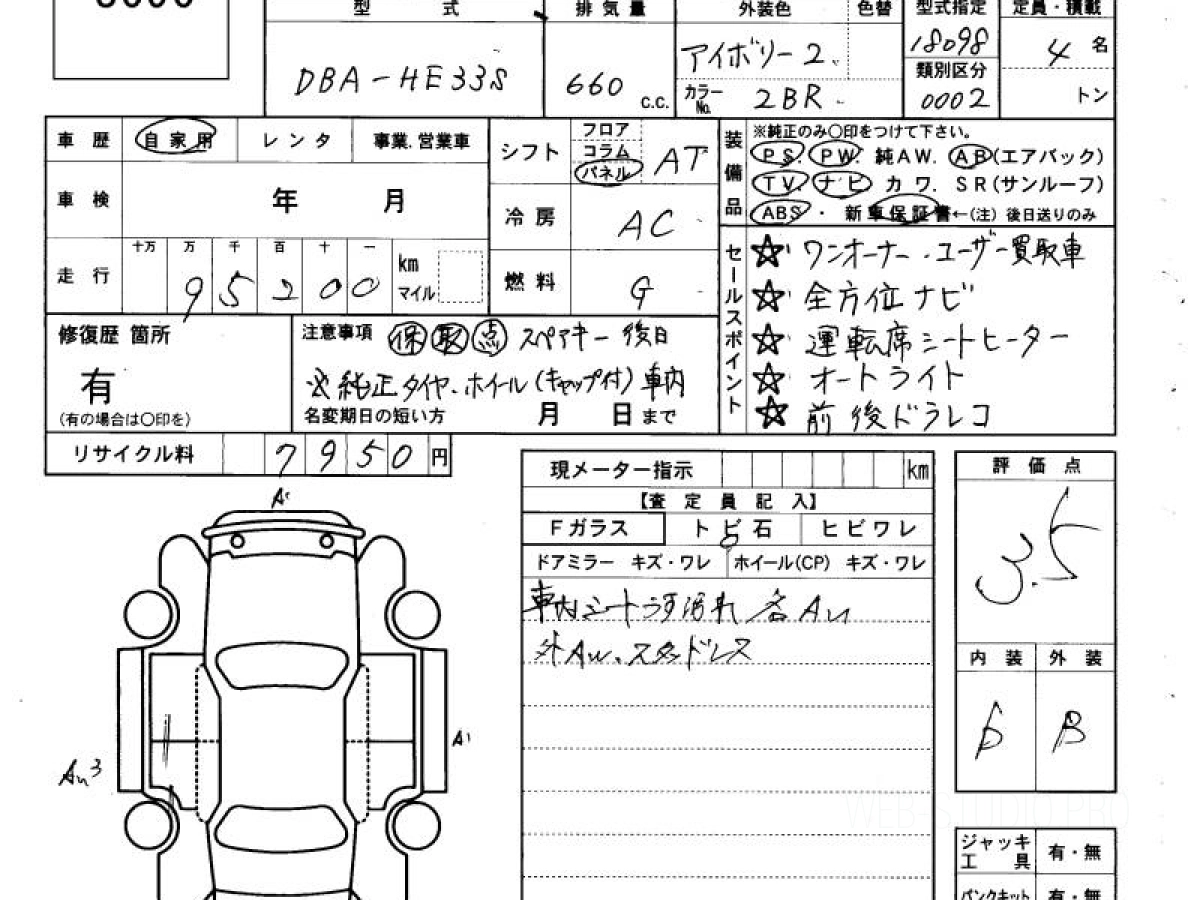 型　式
排気量
外装色
色替
型式指定
定員・積載
DBA-HE33S
660
c.c.
アイボリー2
カラーNo.
2BR
18098
類別区分
0002
4 名
トン
車歴
自家用
レンタ
事業.営業車
車検
年　月
走行
十万 万 千 百 十 一
95200
km
マイル
シフト
フロア
コラム
パネル
AT
冷房
AC
燃料
G
装備品
※純正のみ○印をつけて下さい。
PS. PW. 純AW. AB(エアバック)
TV. ナビ カワ. SR(サンルーフ)
ABS ・ 新車保証書←(注) 後日送りのみ
セールスポイント
☆ ワンオーナー・ユーザー買取車
☆ 全方位ナビ
☆ 運転席シートヒーター
☆ オートライト
☆ 前後ドラレコ
修復歴 箇所
有
(有の場合は○印を)
注意事項
保 取 点 スペアキー 後日
※純正タイヤ.ホイール(キャップ付) 車内
名変期日の短い方　月　日まで
リサイクル料
7950円
現メーター指示
km
【査定員記入】
Fガラス
トビ石
ヒビワレ
ドアミラー キズ・ワレ
ホイール(CP) キズ・ワレ
車内シートうす汚れ 各AU
外AU.スタッドレス
評価点
3.5
内装
外装
B
A1
A1
AU3
ジャッキ
工具
有・無
パンクキット
有・無
WEB-STUDIO PRO